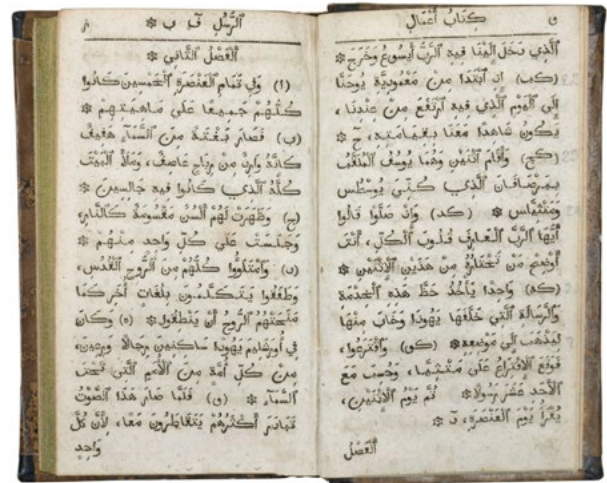 و كتاب أعمال
ٱلذي دخل إلينا فيه ٱلرب أيسوع وخرج ❊
(كب) إن ٱبتدا من معمودية يوحنا
إلى ٱليوم ٱلذي فيه ٱرتفع من عندنا،
يكون شاهدا معنا بقيامته، ❊
(كج) وأقام ٱثنين وهما يوسف ٱلملقب
ٱلذي كني يوسطس
ومتثياس ❊ (كد) وإذ صلوا قالوا
أيها ٱلرب ٱلعارف قلوب ٱلكل، أنت
أوضح من تختاره من هذين ٱلاثنين ❊
(كه) واحدا يأخذ حظ هذه ٱلخدمة
وٱلرسالة ٱلتي خلفها يهودا وغاب منها
ليذهب إلى موضعه ❊ (كو) وٱقترعوا،
فوقع ٱلاقتراع على متثيا، وحسب مع
ٱلأحد عشر رسولا ❊ تم يوم ٱلاثنين،
يقرأ يوم ٱلعنصرة، ❊
ٱلفصل
ٱلرسل ق ب ❊ ز
ٱلفصل ٱلثاني ❊
(ا) وفي تمام ٱلعنصرة ٱلخمسين كانوا
كلهم جميعا على ❊
(ب) فصار بغتة من ٱلسماء هفيف
كأنه وارد من رياح عاصف، وملأ ٱلبيت
كله ٱلذي كانوا فيه جالسين ❊
(ج) وظهرت لهم ألسن مقسومة كٱلنار،
وجلست على كل واحد منهم ❊
(د) وٱمتلووا كلهم من ٱلروح ٱلقدس،
وطفقوا يتكلمون بلغات أخر كما
منحتهم ٱلروح أن ينطقوا ❊ (ه) وكان
في أورشليم يهودا ساكنين رجالا ورعين،
من كل أمة من ٱلأمم ٱلتي تحت
ٱلسماء ❊ (و) فلما صار هذا ٱلصوت
تبادر أكثرهم يتقاطرون معا، لأن كل
واحد